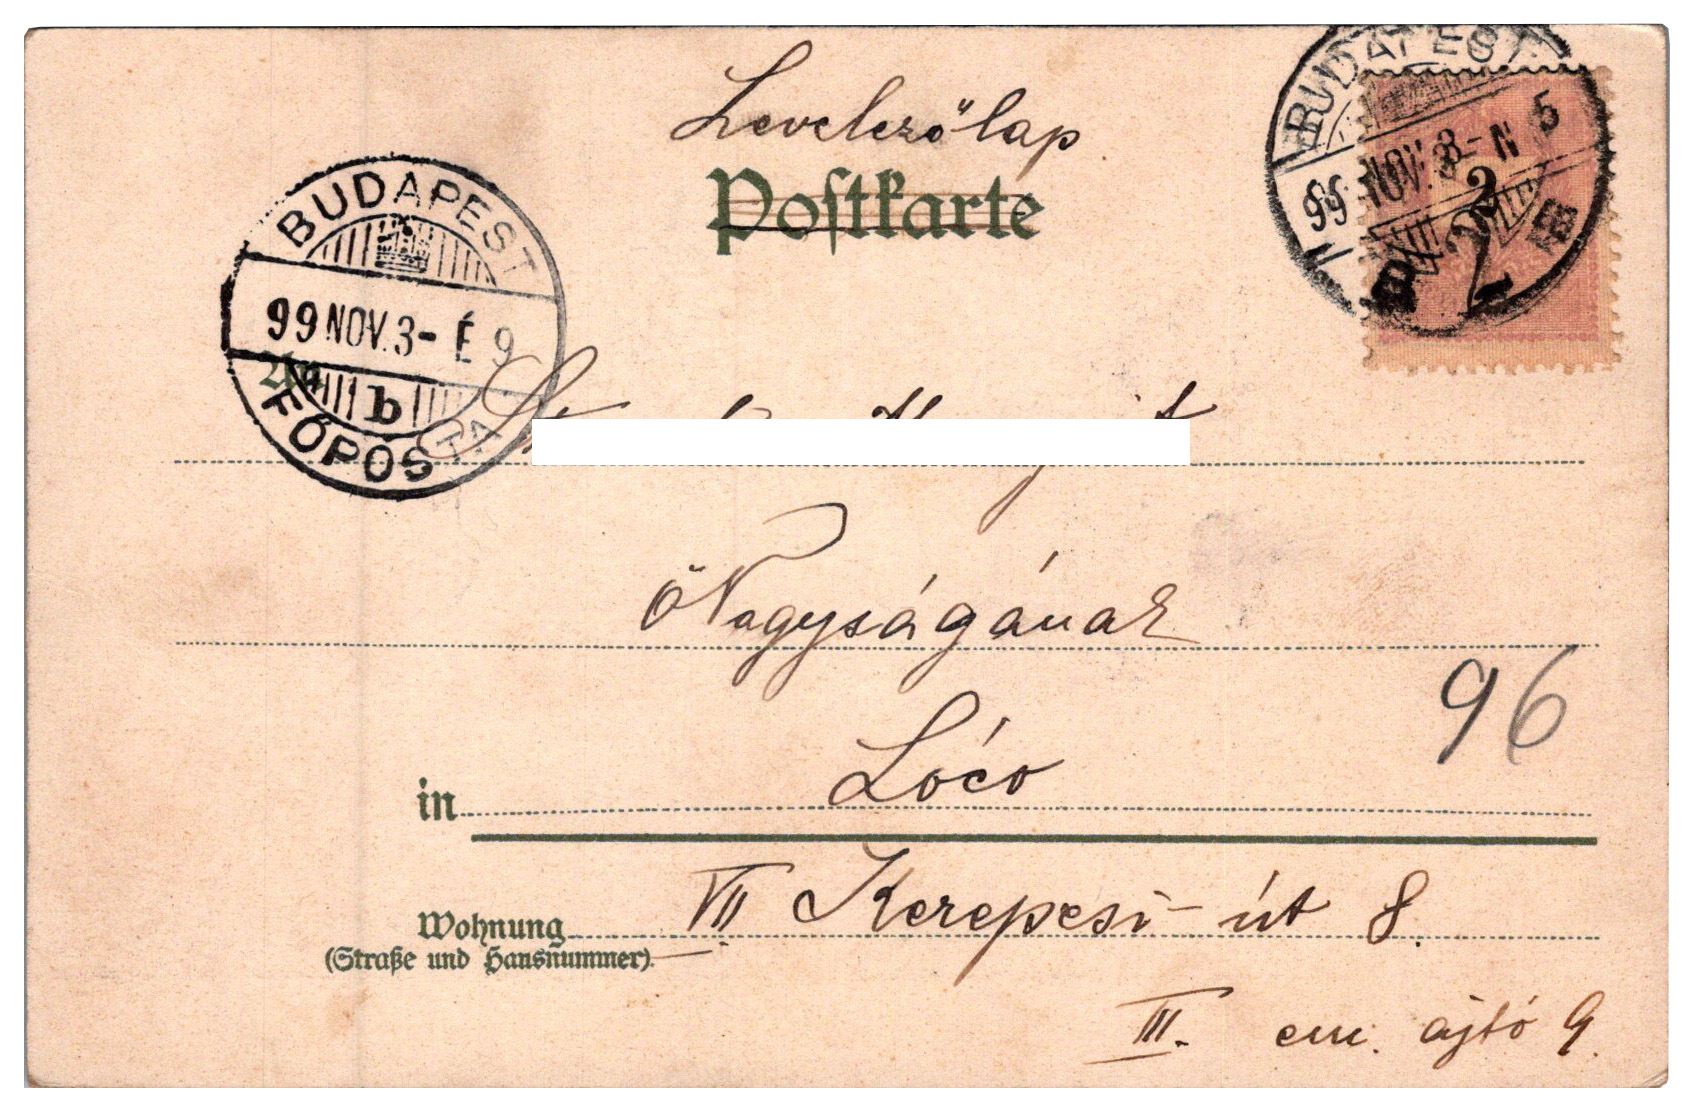 Levelező lap
Postkarte
BUDAPEST
99 NOV. 3 - N 5
2
BUDAPEST
99 NOV. 3 - É 9
b
FŐPÓSTA
An
ő Nagyságának
in Lócó
96
Wohnung VII. Kerepesi-út 8.
(Straße und Hausnummer)
III. em. ajtó 9.